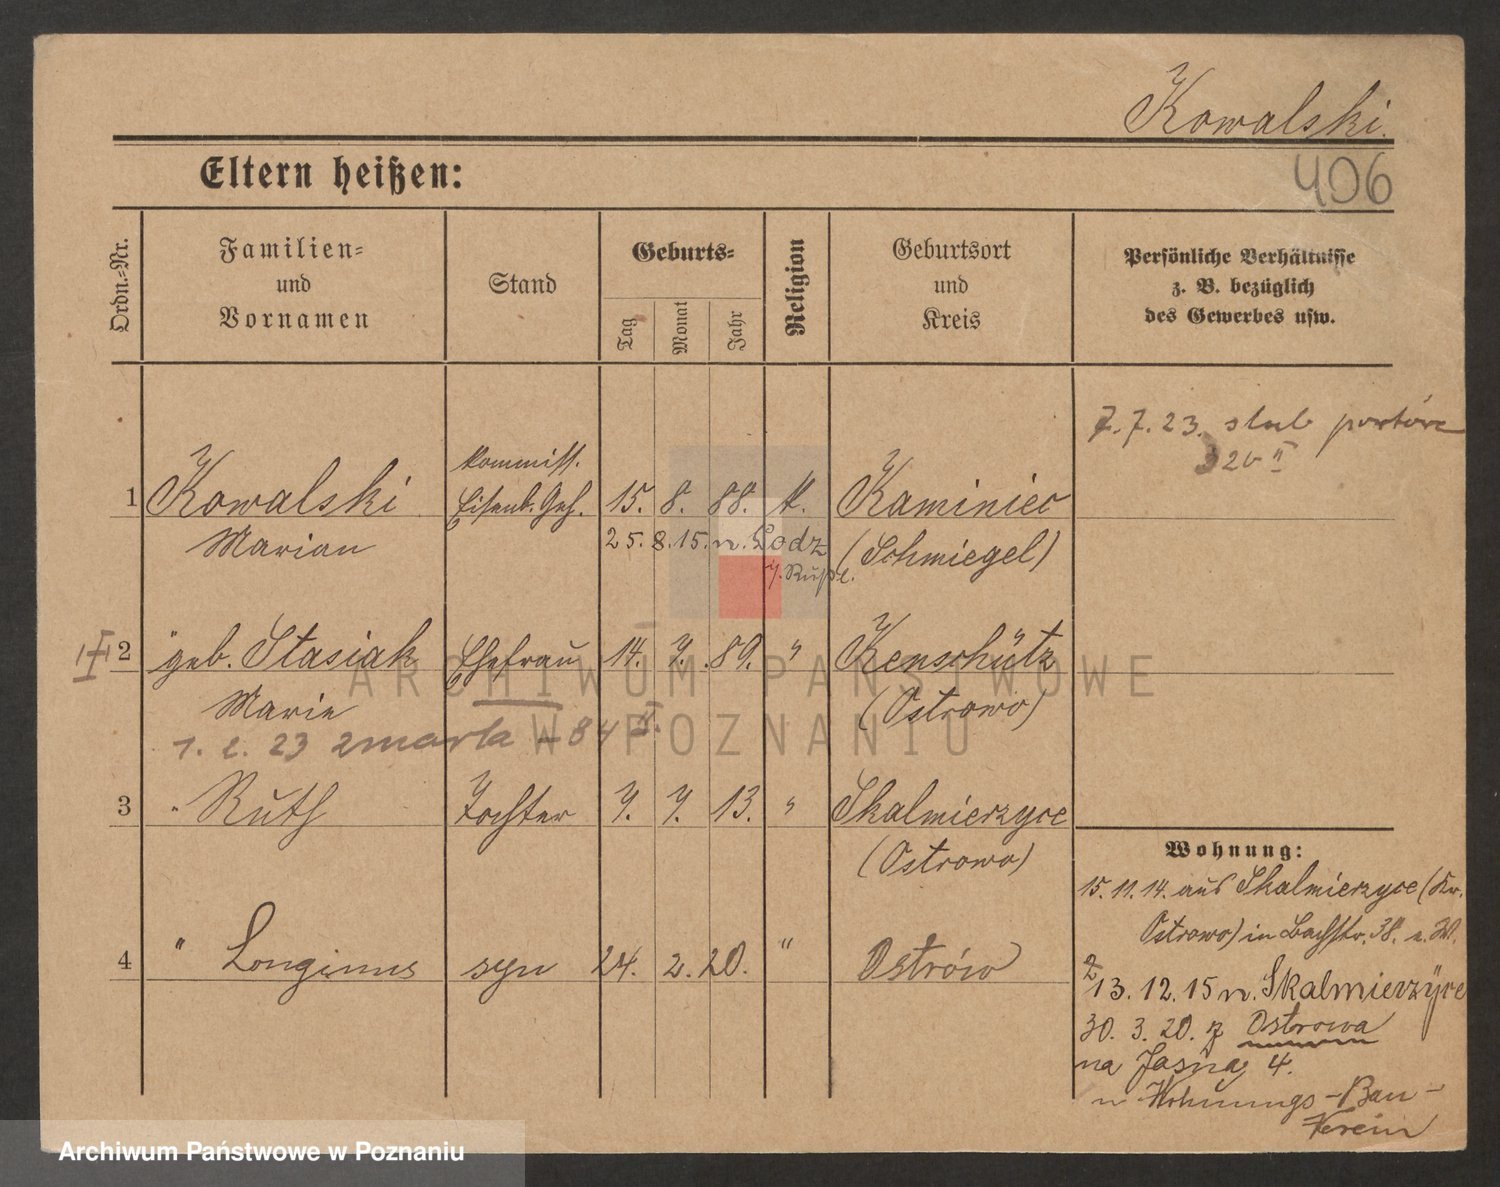 Kowalski.
406
Eltern heißen:
Ordn.-Nr.
Familien-
und
Vornamen
Stand
Geburts-
Tag
Monat
Jahr
Religion
Geburtsort
und
Kreis
Persönliche Verhältnisse
z. B. bezüglich
des Gewerbes usw.
7. 7. 23. slub
kommiss.
1 Kowalski Eisenb. Geh. 15. 8. 88. k. Kaminiec
Marian 25. 8. 15. n. Lodz (Schmiegel)
i. Rußl.
2 " geb. Stasiak Ehefrau 14. 7. 89. " Kenschütz
Marie (Ostrowo)
1. 2. 23 zmarła - 84 II.
3 " Ruth Tochter 7. 7. 13. " Skalmierzyce
(Ostrowo)
Wohnung:
15. 11. 14. aus Skalmierzyce (Kr.
Ostrowo) in Bachstr. 38.
4 " Longinus syn 24. 2. 20. " Ostrów
13. 12. 15 n. Skalmierzyce
30. 3. 20. z Ostrowa
na Jasną 4.
Wohnungs-Bau-
Verein
ARCHIWUM PAŃSTWOWE
W POZNANIU
Archiwum Państwowe w Poznaniu